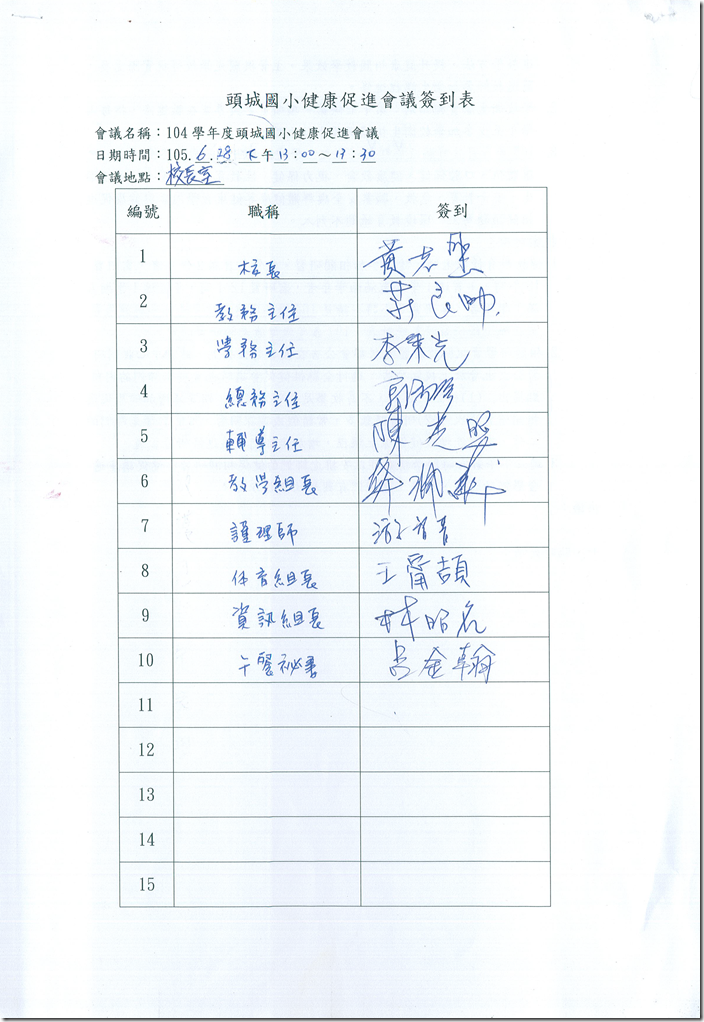 頭城國小健康促進會議簽到表
會議名稱：104 學年度頭城國小健康促進會議
日期時間：105.6.28 下午13：00～13：30
會議地點：校長室
編號 職稱 簽到
1 校長 黃志堅
2 教務主任 莊良帥
3 學務主任 李秉光
4 總務主任
5 輔導主任 陳
6 教學組長
7 護理師 游
8 体育組長 王甯頡
9 資訊組長 林昭宏
10 午餐祕書 呂金翰
11
12
13
14
15